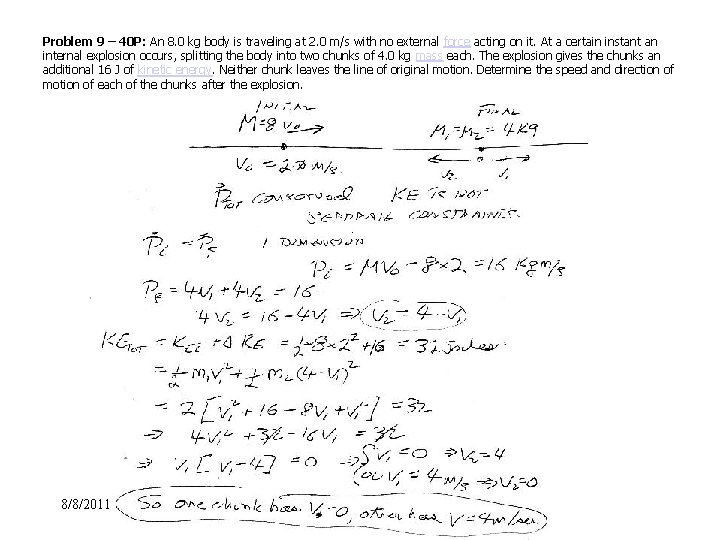 Problem 9 – 40P: An 8.0 kg body is traveling at 2.0 m/s with no external force acting on it. At a certain instant an
internal explosion occurs, splitting the body into two chunks of 4.0 kg mass each. The explosion gives the chunks an
additional 16 J of kinetic energy. Neither chunk leaves the line of original motion. Determine the speed and direction of
motion of each of the chunks after the explosion.
INITIAL FINAL
M=8 V₀ → M₁=M₂ = 4 Kg
V₀ = 2.0 m/s. V₂ V₁
P⃗TOT conserved KE IS NOT
CONSTRAINTS.
P⃗i = P⃗F 1 DIMENSION
Pi = MV₀ = 8×2 = 16 Kg m/s
PF = 4V₁ + 4V₂ = 16
4V₂ = 16 - 4V₁ ⇒ V₂ = 4 - V₁
KETOT = KEi + Δ KE = ½ 8×2² + 16 = 32 Joules
= ½ M₁V₁² + ½ M₂ (4-V₁)²
= 2 [V₁² + 16 - 8V₁ + V₁²] = 32
⇒ 4V₁² + 32 - 16V₁ = 32
⇒ V₁ [V₁ - 4] = 0 ⇒ { V₁ = 0 ⇒ V₂ = 4
or V₁ = 4 m/s ⇒ V₂ = 0
8/8/2011 So one chunk has V = 0, other has V = 4 m/sec